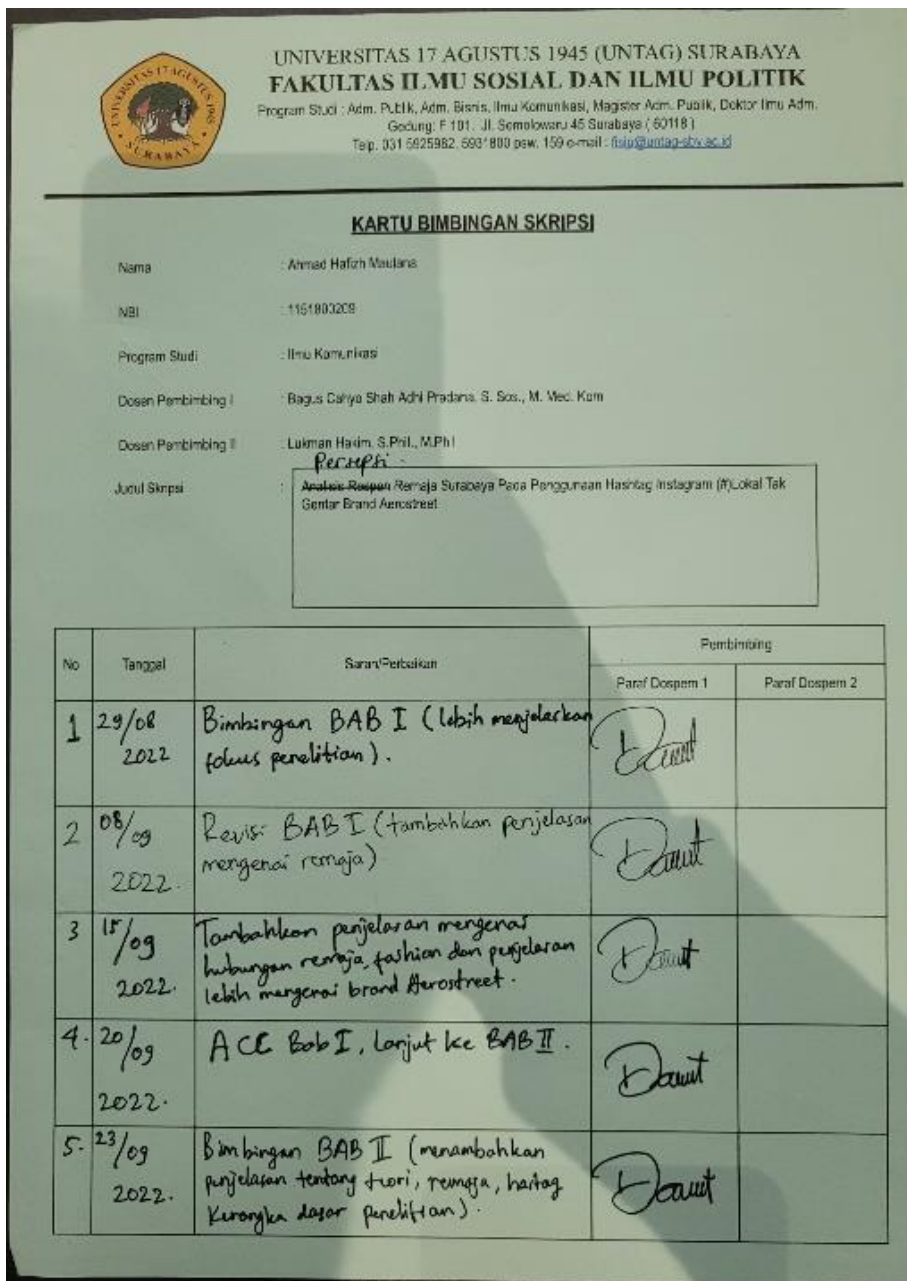 UNIVERSITAS 17 AGUSTUS 1945 (UNTAG) SURABAYA
FAKULTAS ILMU SOSIAL DAN ILMU POLITIK
Program Studi : Adm. Publik, Adm. Bisnis, Ilmu Komunikasi, Magister Adm. Publik, Doktor Ilmu Adm.
Gedung: F 101. Jl. Semolowaru 45 Surabaya ( 60118 )
Telp. 031 5925982, 5931800 psw. 159 e-mail : fisip@untag-sby.ac.id
UNIVERSITAS 17 AGUSTUS 1945
SURABAYA
KARTU BIMBINGAN SKRIPSI
Nama : Ahmad Hafizh Maulana
NBI : 1151800209
Program Studi : Ilmu Komunikasi
Dosen Pembimbing I : Bagus Cahyo Shah Adhi Pradana, S. Sos., M. Med. Kom
Dosen Pembimbing II : Lukman Hakim, S.Phil., M.Phil
Persepsi
Judul Skripsi : Analisis Respon Remaja Surabaya Pada Penggunaan Hashtag Instagram (#)Lokal Tak
Gentar Brand Aerostreet
No Tanggal Saran/Perbaikan Pembimbing
Paraf Dospem 1 Paraf Dospem 2
1 29/08 2022 Bimbingan BAB I (lebih menjelaskan
fokus penelitian).
2 08/09 2022. Revisi BAB I (tambahkan penjelasan
mengenai remaja)
3 15/09 2022. Tambahkan penjelasan mengenai
hubungan remaja, fashion dan penjelasan
lebih mengenai brand Aerostreet.
4. 20/09 2022. ACC Bab I, lanjut ke BAB II.
5. 23/09 2022. Bimbingan BAB II (menambahkan
penjelasan tentang teori, remaja, hastag
Kerangka dasar penelitian).